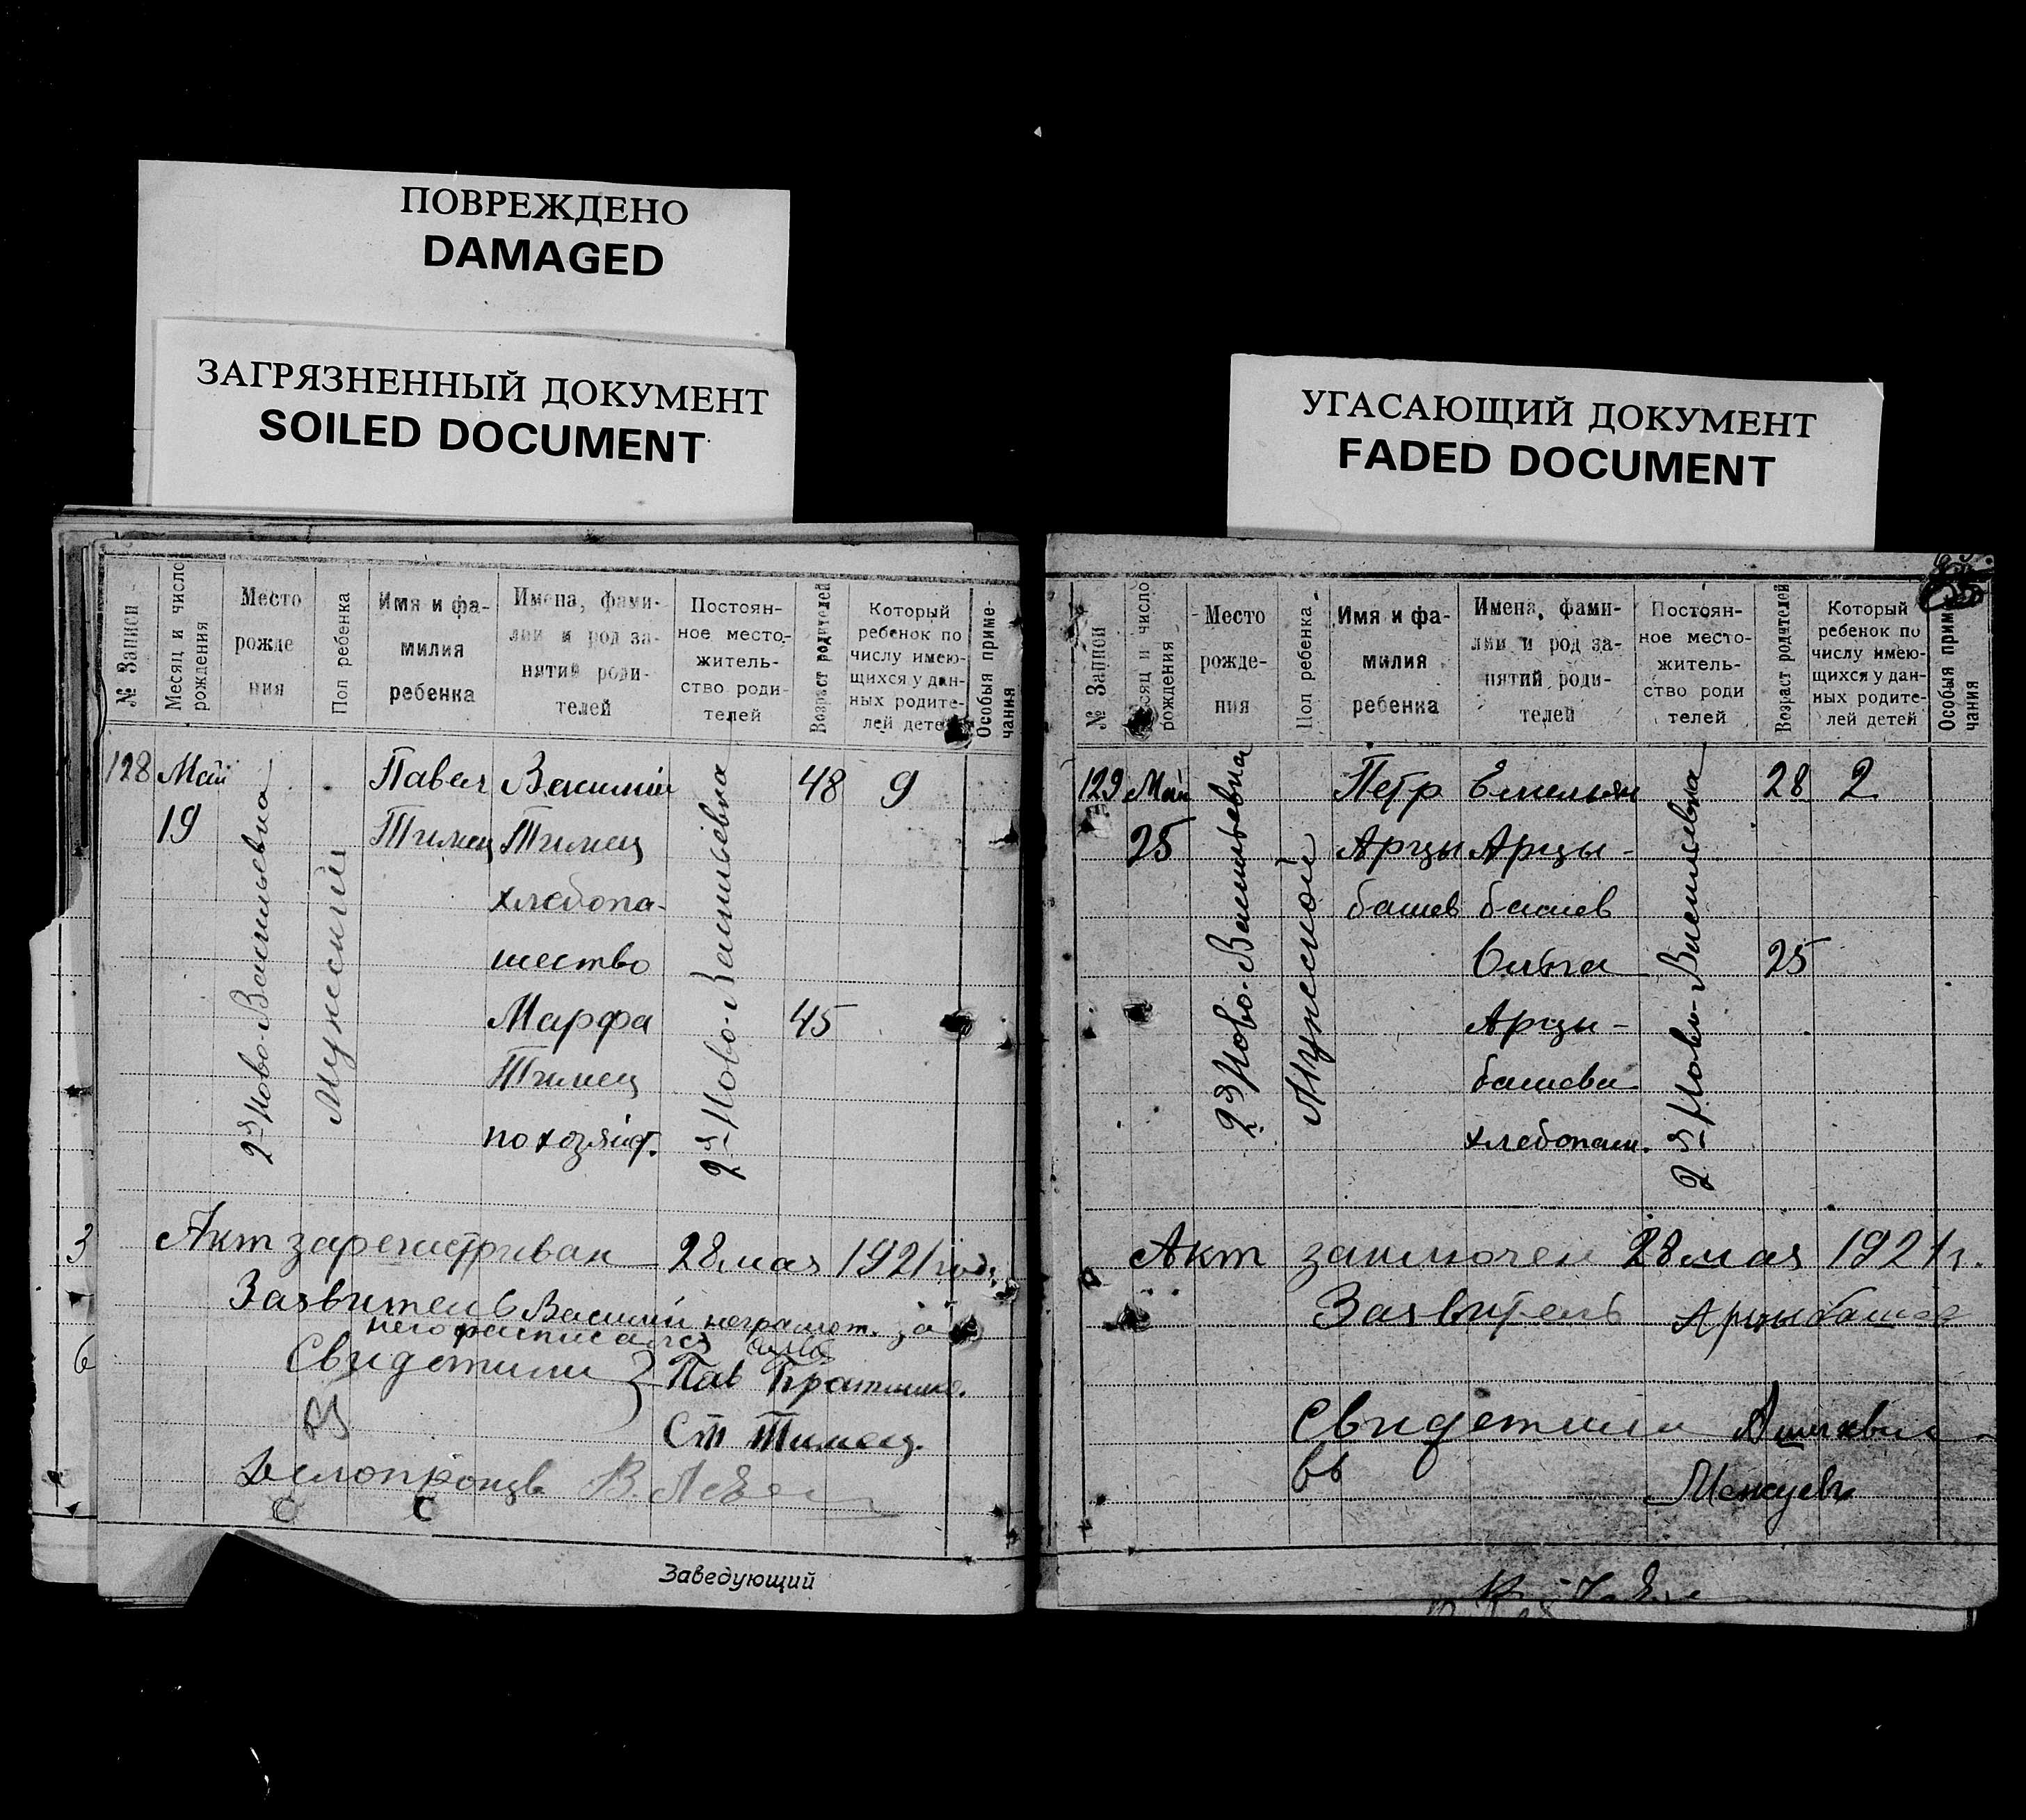 ПОВРЕЖДЕНО
DAMAGED
ЗАГРЯЗНЕННЫЙ ДОКУМЕНТ
SOILED DOCUMENT
УГАСАЮЩИЙ ДОКУМЕНТ
FADED DOCUMENT
№ Записи
Месяц и число
рождения
Место
рожде
ния
Пол ребенка
Имя и фа-
милия
ребенка
Имена, фами-
лии и род за-
нятий роди-
телей
Постоян-
ное место-
житель-
ство роди-
телей
Возраст родителей
Который
ребенок по
числу имею-
щихся у дан-
ных родите-
лей детей
Особыя приме-
чания
128
Май
19
2я Ново-Васильевка
Мужеский
Павел
Тимец
Василий
Тимец
хлебопа-
шество
Марфа
Тимец
по хозяйст.
2я Ново-Васильевка
48
45
9
3
6
Акт зарегистриван 28 мая 1921 год.
Заявитель Василий неграмот. за
него расписался
Свидетили } Пав
Ст Тимец.
Делопроизв В.
Заведующий
№ Записи
сяц и число
рождения
Место
рожде-
ния
Пол ребенка
Имя и фа-
милия
ребенка
Имена, фами-
лии и род за-
нятий роди-
телей
Постоян-
ное место-
житель-
ство роди
телей
Возраст родителей
Который
ребенок по
числу имею-
щихся у дан-
ных родите-
лей детей
Особыя прим
чания
129
Май
25
2я Ново-Васильевка
Мужеской
Петр
Арцы
башев
Емельян
Арцы-
башев
Ольга
Арцы-
башева
хлебопаш.
2я Ново-Васильевка
28
25
2
Акт заключен 28 мая 1921 г.
Заявитель Арцыбашев
Свидетили